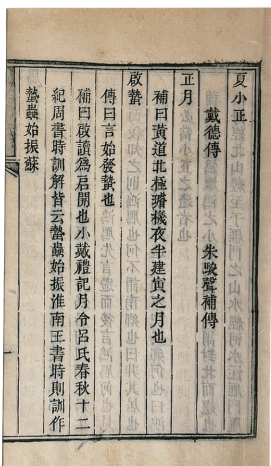 夏小正
戴德傳　朱駿聲補傳
正月
補曰黃道北極璿機夜半建寅之月也
啟蟄
傳曰言始發蟄也
補曰啟讀爲启開也小戴禮記月令呂氏春秋十二
紀周書時訓解皆云蟄蟲始振淮南王書時則訓作
蟄蟲始振蘇